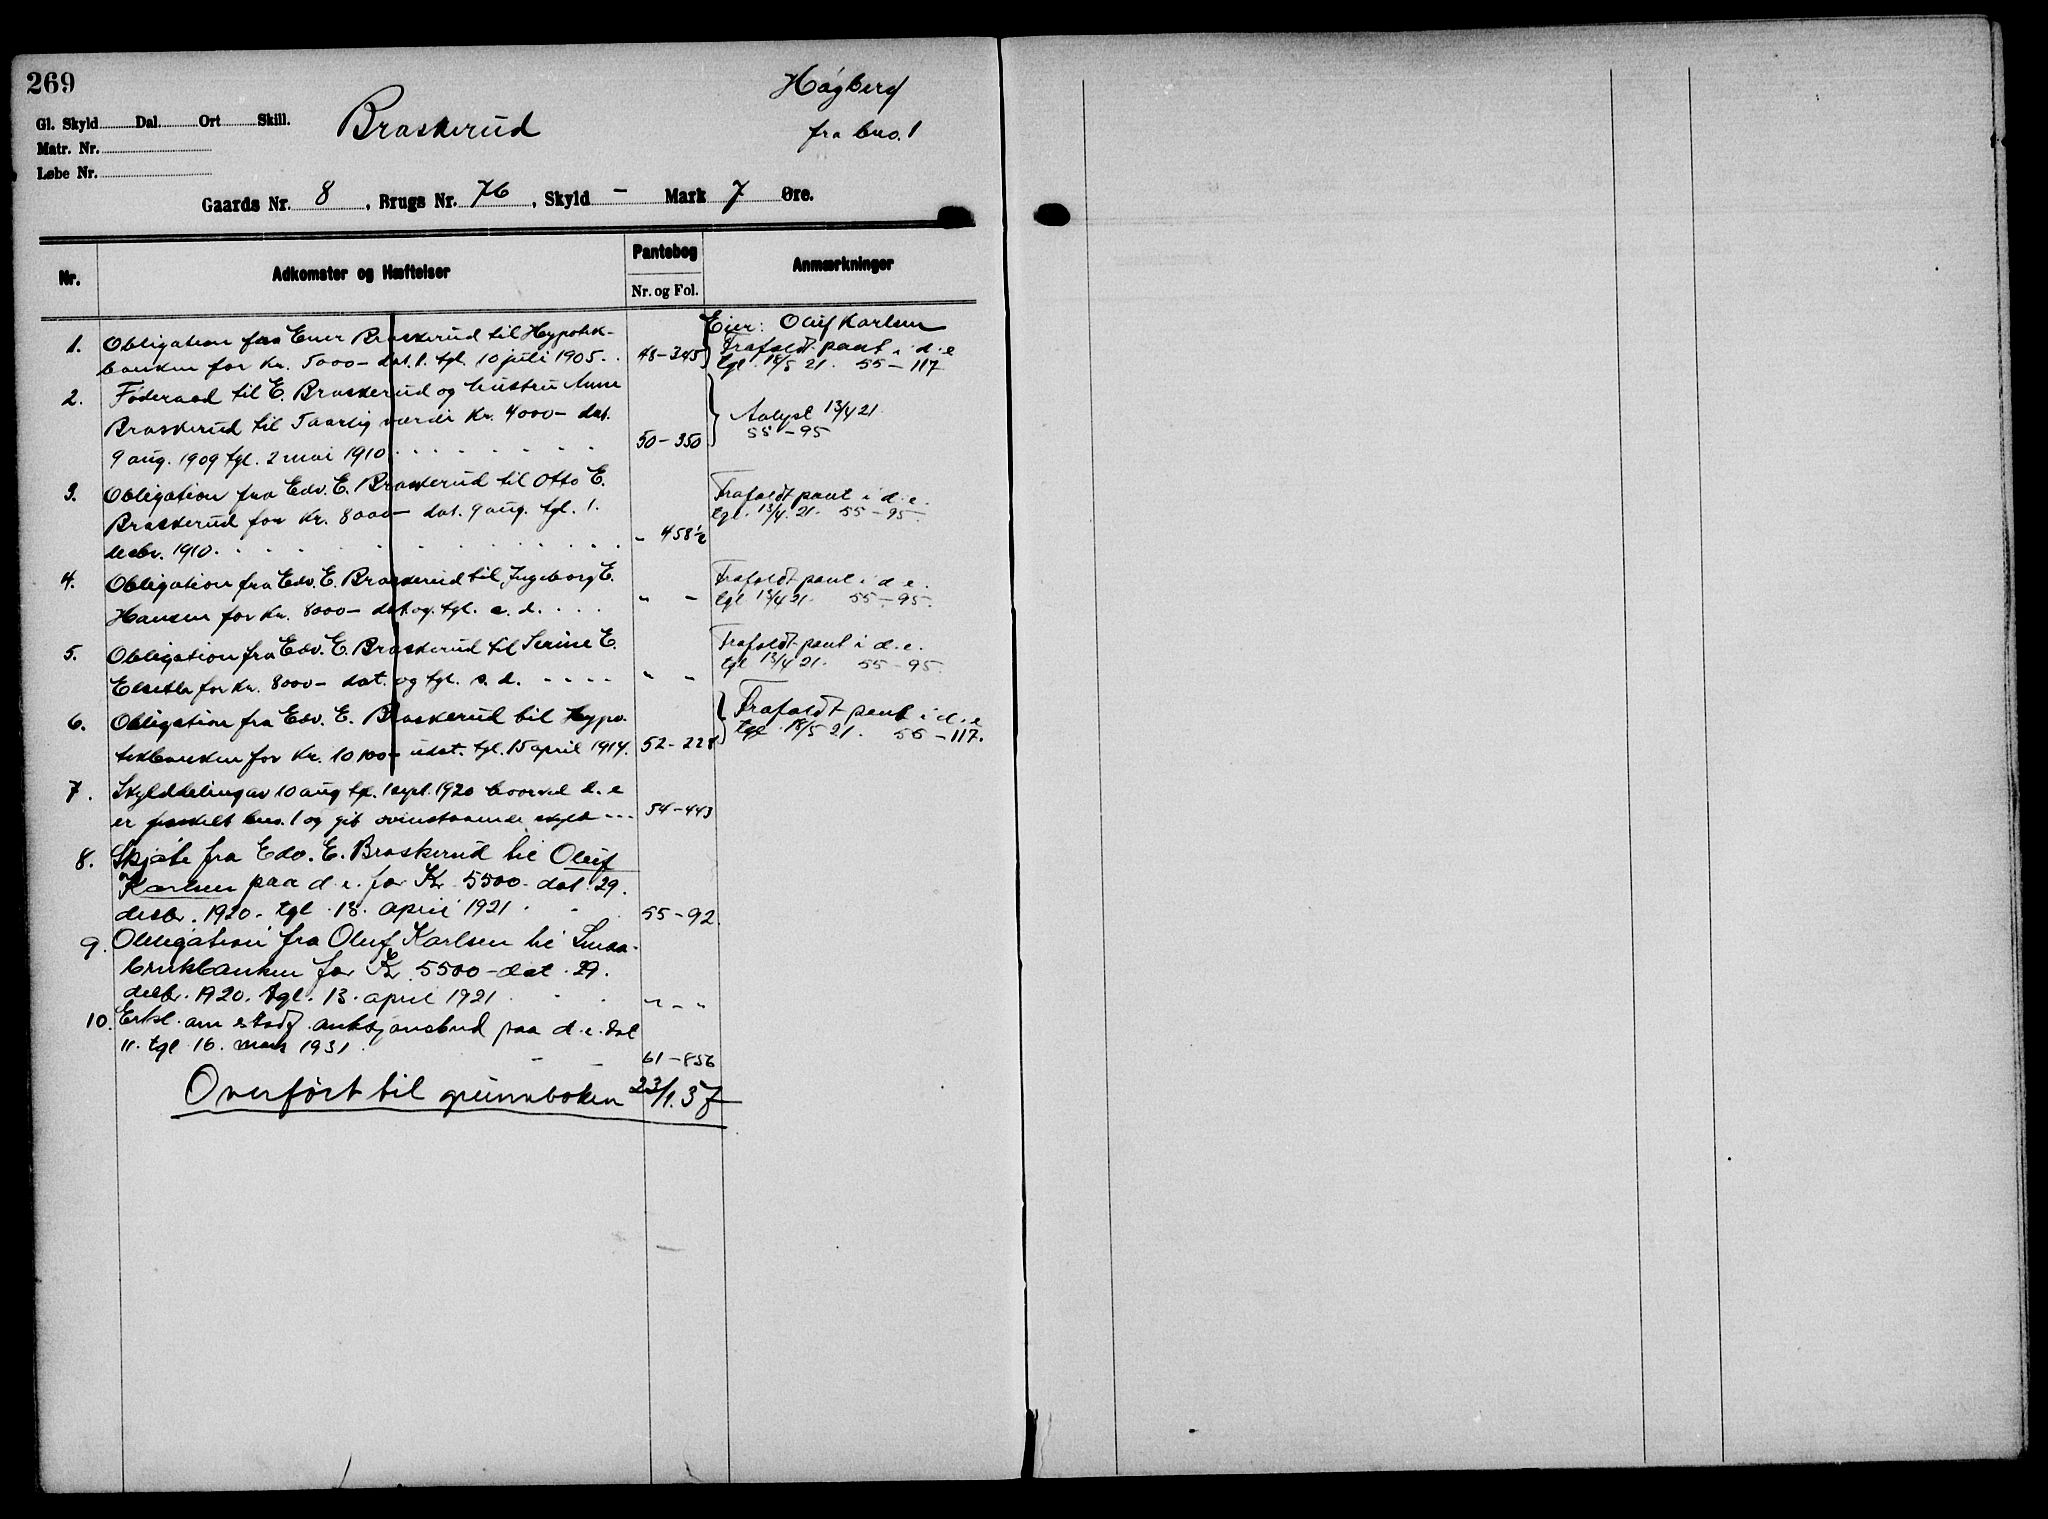 269
Gl. Skyld Dal. Ort Skill.
Matr. Nr.
Løbe Nr.
Braskerud
Høgberg
fra bno. 1
Gaards Nr. 8, Brugs Nr. 76, Skyld - Mark 7 Øre.
Nr.
Adkomster og Hæftelser
Pantebog
Nr. og Fol.
Anmærkninger
Eier: Oluf Karlsen
1. Obligation fra Einer Braskerud til Hypotek-
banken for Kr. 5000- dat. 1. tgl. 10 juli 1905. 48-345
Frafaldt pant i d. e
tgl. 18/5 21. 55-117
2. Føderaad til E. Braskerud og hustru Anne
Braskerud til 5 aarlig værdi Kr. 4000- dat.
9 aug. 1909 tgl. 2 mai 1910. 50-350
Avlyst 13/4 21.
55-95
3. Obligation fra Edv. E. Braskerud til Otto E.
Braskerud for Kr. 8000- dat. 9 aug. tgl. 1.
decbr. 1910. " 458 1/2
Frafaldt pant i d. e.
tgl. 13/4. 21. 55-95.
4. Obligation fra Edv. E. Braskerud til Ingeborg E.
Hansen for Kr. 8000- dat. og tgl. s. d. " -
Frafaldt pant i d. e.
tgl 13/4 21. 55-95.
5. Obligation fra Edv. E. Braskerud til Serine E.
for Kr. 8000- dat. og tgl. s. d. " "
Frafaldt pant i d. e.
tgl 13/4 21. 55-95.
6. Obligation fra Edv. E. Braskerud til Hypo-
tekbanken for Kr. 10100- utst. tgl. 15 april 1914. 52-228
Frafaldt pant i d. e
tgl. 18/5 21. 55-117.
7. Skylddeling av 10 aug tgl. 1 sept. 1920 hvorved d. e
er fraskilt bno. 1 og git ovenstaaende skyld 54-443
8. Skjøte fra Edv. E. Braskerud til Oluf
Karlsen paa d. e. for Kr. 5500- dat. 29.
decbr. 1920. tgl. 13. april 1921 55-92
9. Obligation fra Oluf Karlsen til Smaa-
brukbanken for Kr 5500- dat. 29.
decbr. 1920. tgl. 13. april 1921 " - "
10. Erkl. om auksjonsbud paa d. e. dat
11. tgl 16. mars 1931. 61-856
Overført til grunnboken 23/1. 37